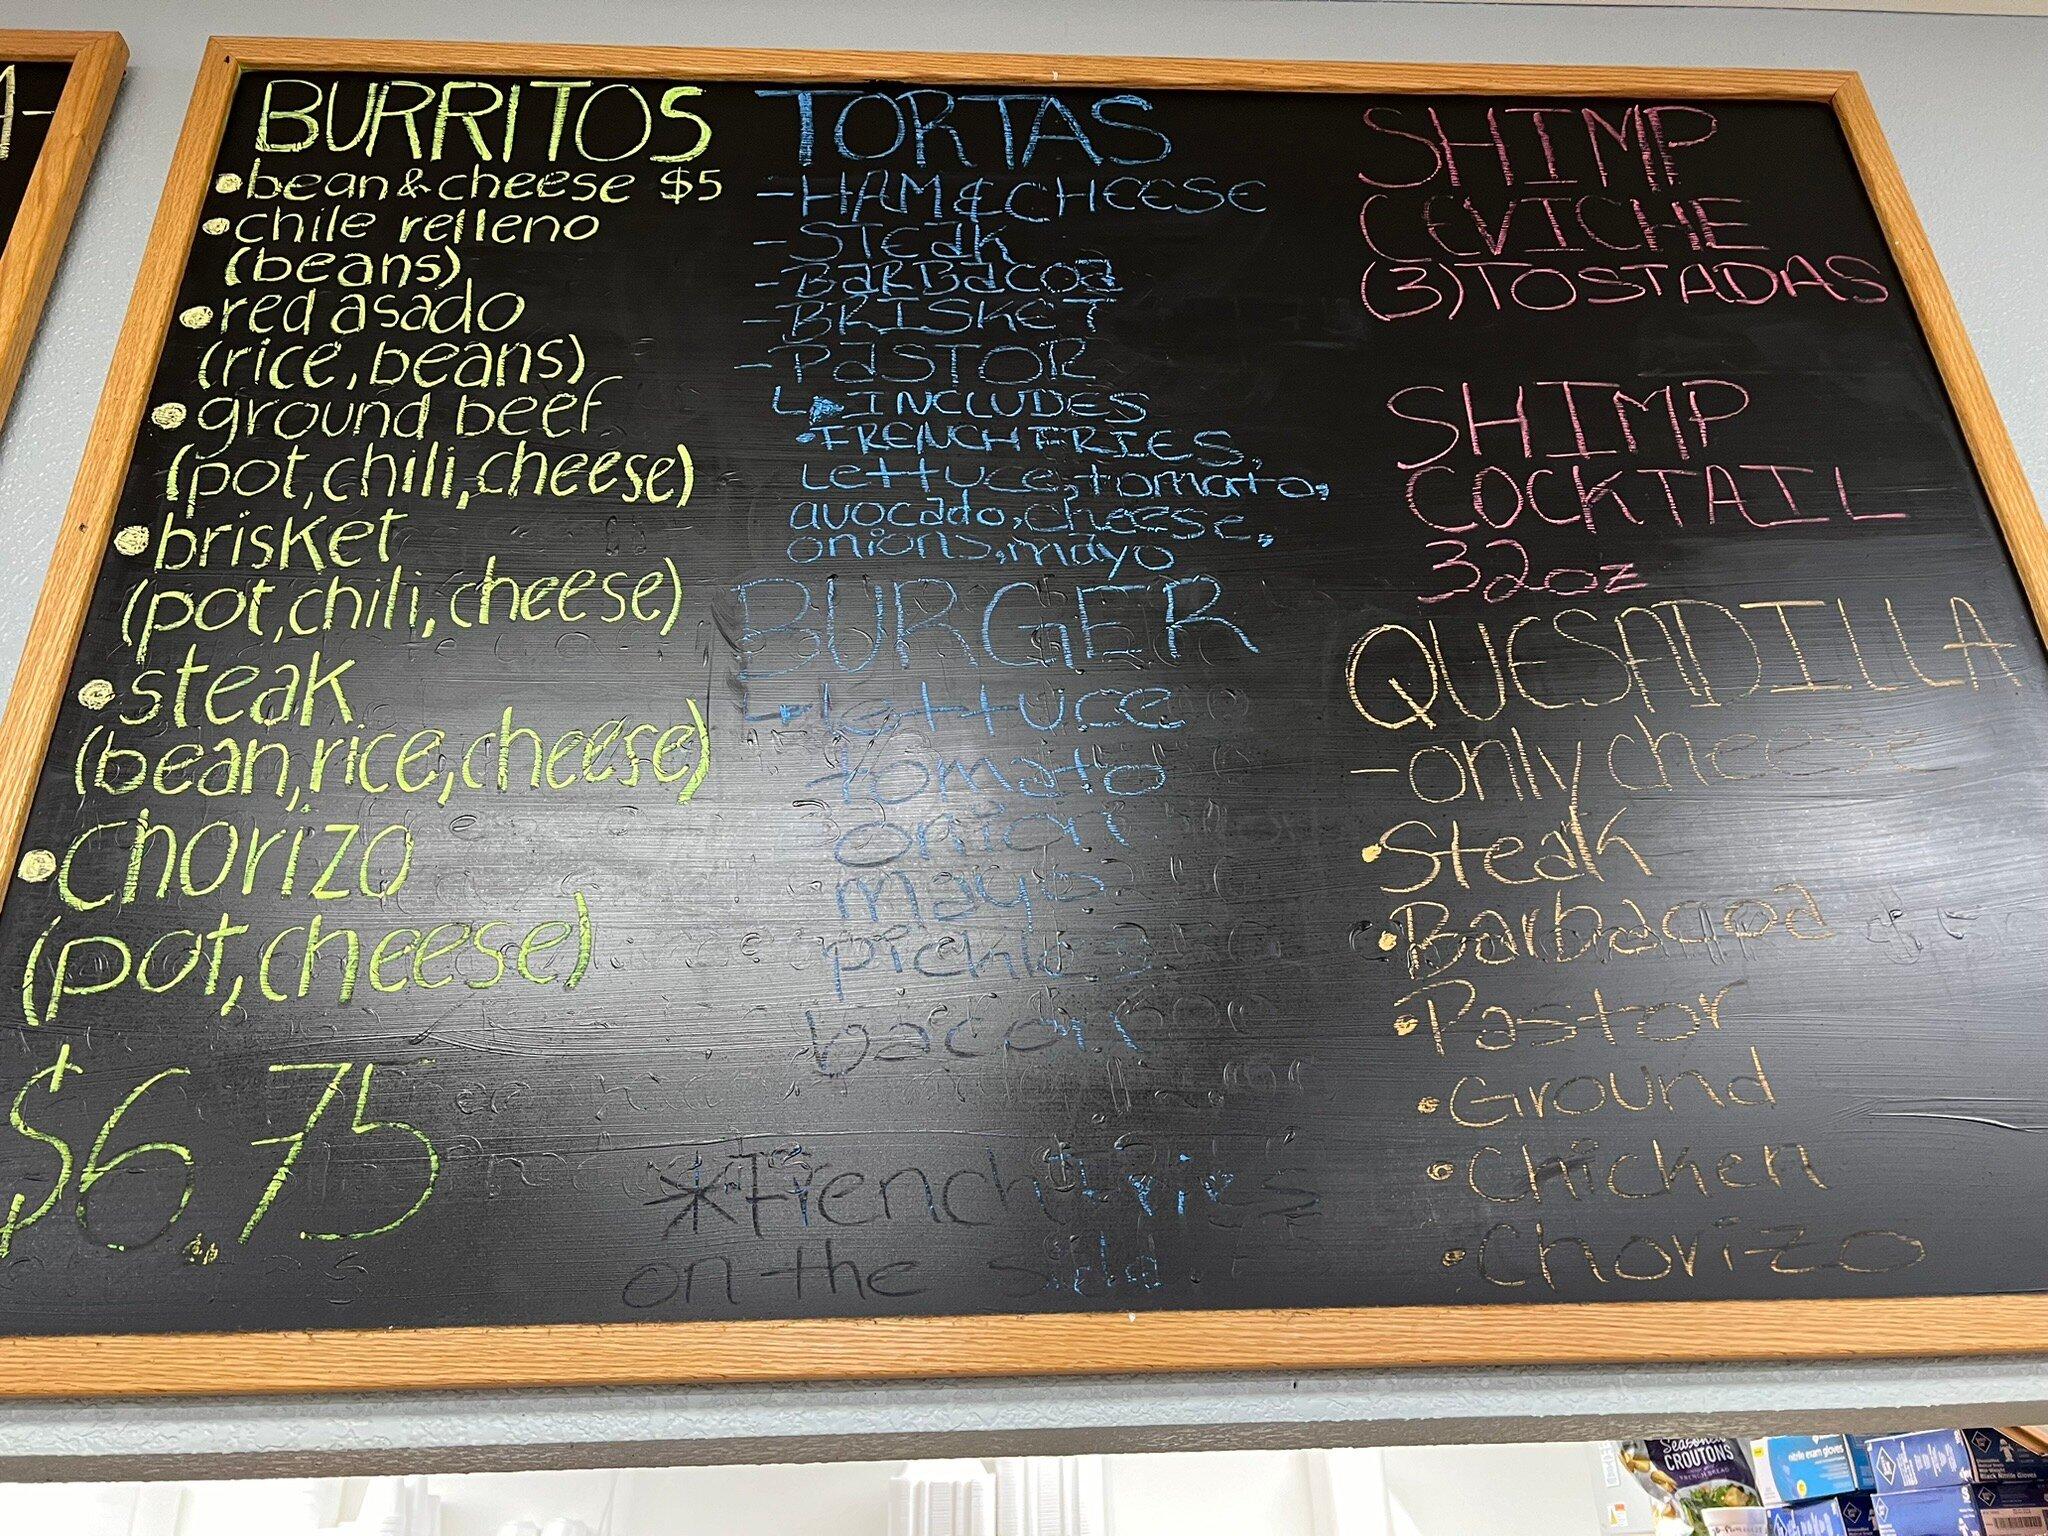 BURRITOS
•bean & cheese $5
•chile relleno
(beans)
•red asado
(rice, beans)
•ground beef
(pot, chili, cheese)
•brisket
(pot, chili, cheese)
•steak
(bean, rice, cheese)
•chorizo
(pot, cheese)
$6.75
TORTAS
-HAM & CHEESE
-STEak
-BaRBacoa
-BRISKET
-PaSTOR
INCLUDES
•FRENCH FRIES,
Lettuce, tomato,
avocado, cheese,
onions, mayo
BURGER
lettuce
tomato
onion
mayo
pickles
bacon
*French Fries
on the side
SHIMP
CEVICHE
(3) TOSTADAS
SHIMP
COCKTAIL
32oz
QUESADILLA
-only cheese
•Steak
•Barbacoa
•Pastor
•Ground
•Chicken
•Chorizo
Seasoned
CROUTONS
nitrile exam gloves